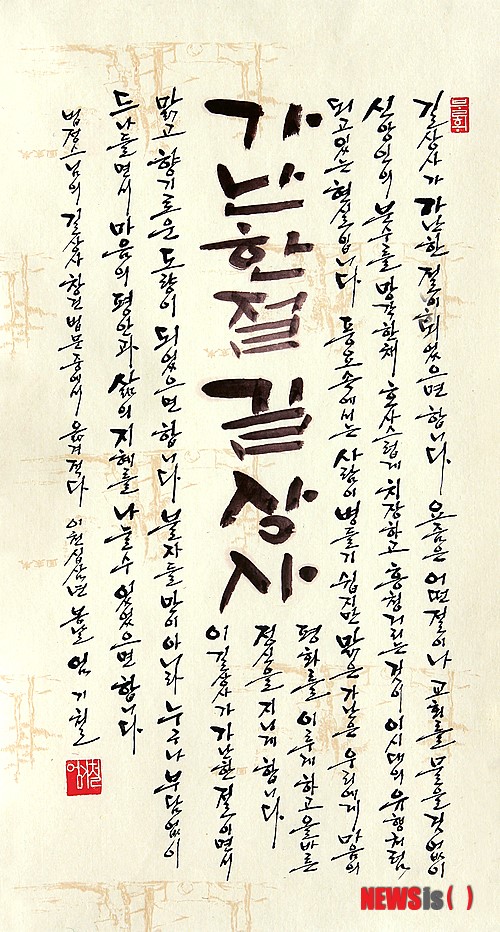 길상사가 가난한 절이 되었으면 합니다 요즘은 어떤 절이나 교회를 물을 것 없이
신앙인의 분수를 망각한 채 호사스럽게 치장하고 흥청거리는 것이 이 시대의 유행처럼
되고 있는 현실입니다 풍요 속에서는 사람이 병들기 쉽지만 맑은 가난은 우리에게 마음의
평화를 이루게 하고 올바른
정신을 지니게 합니다
이 길상사가 가난한 절이면서
가난한 절 길상사
맑고 향기로운 도량이 되었으면 합니다 불자들만이 아니라 누구나 부담없이
드나들면서 마음의 평안과 삶의 지혜를 나눌 수 있었으면 합니다
법정스님의 길상사 창건 법문 중에서 옮겨 적다 이천십삼년 봄날 임 기철
NEWSis( )